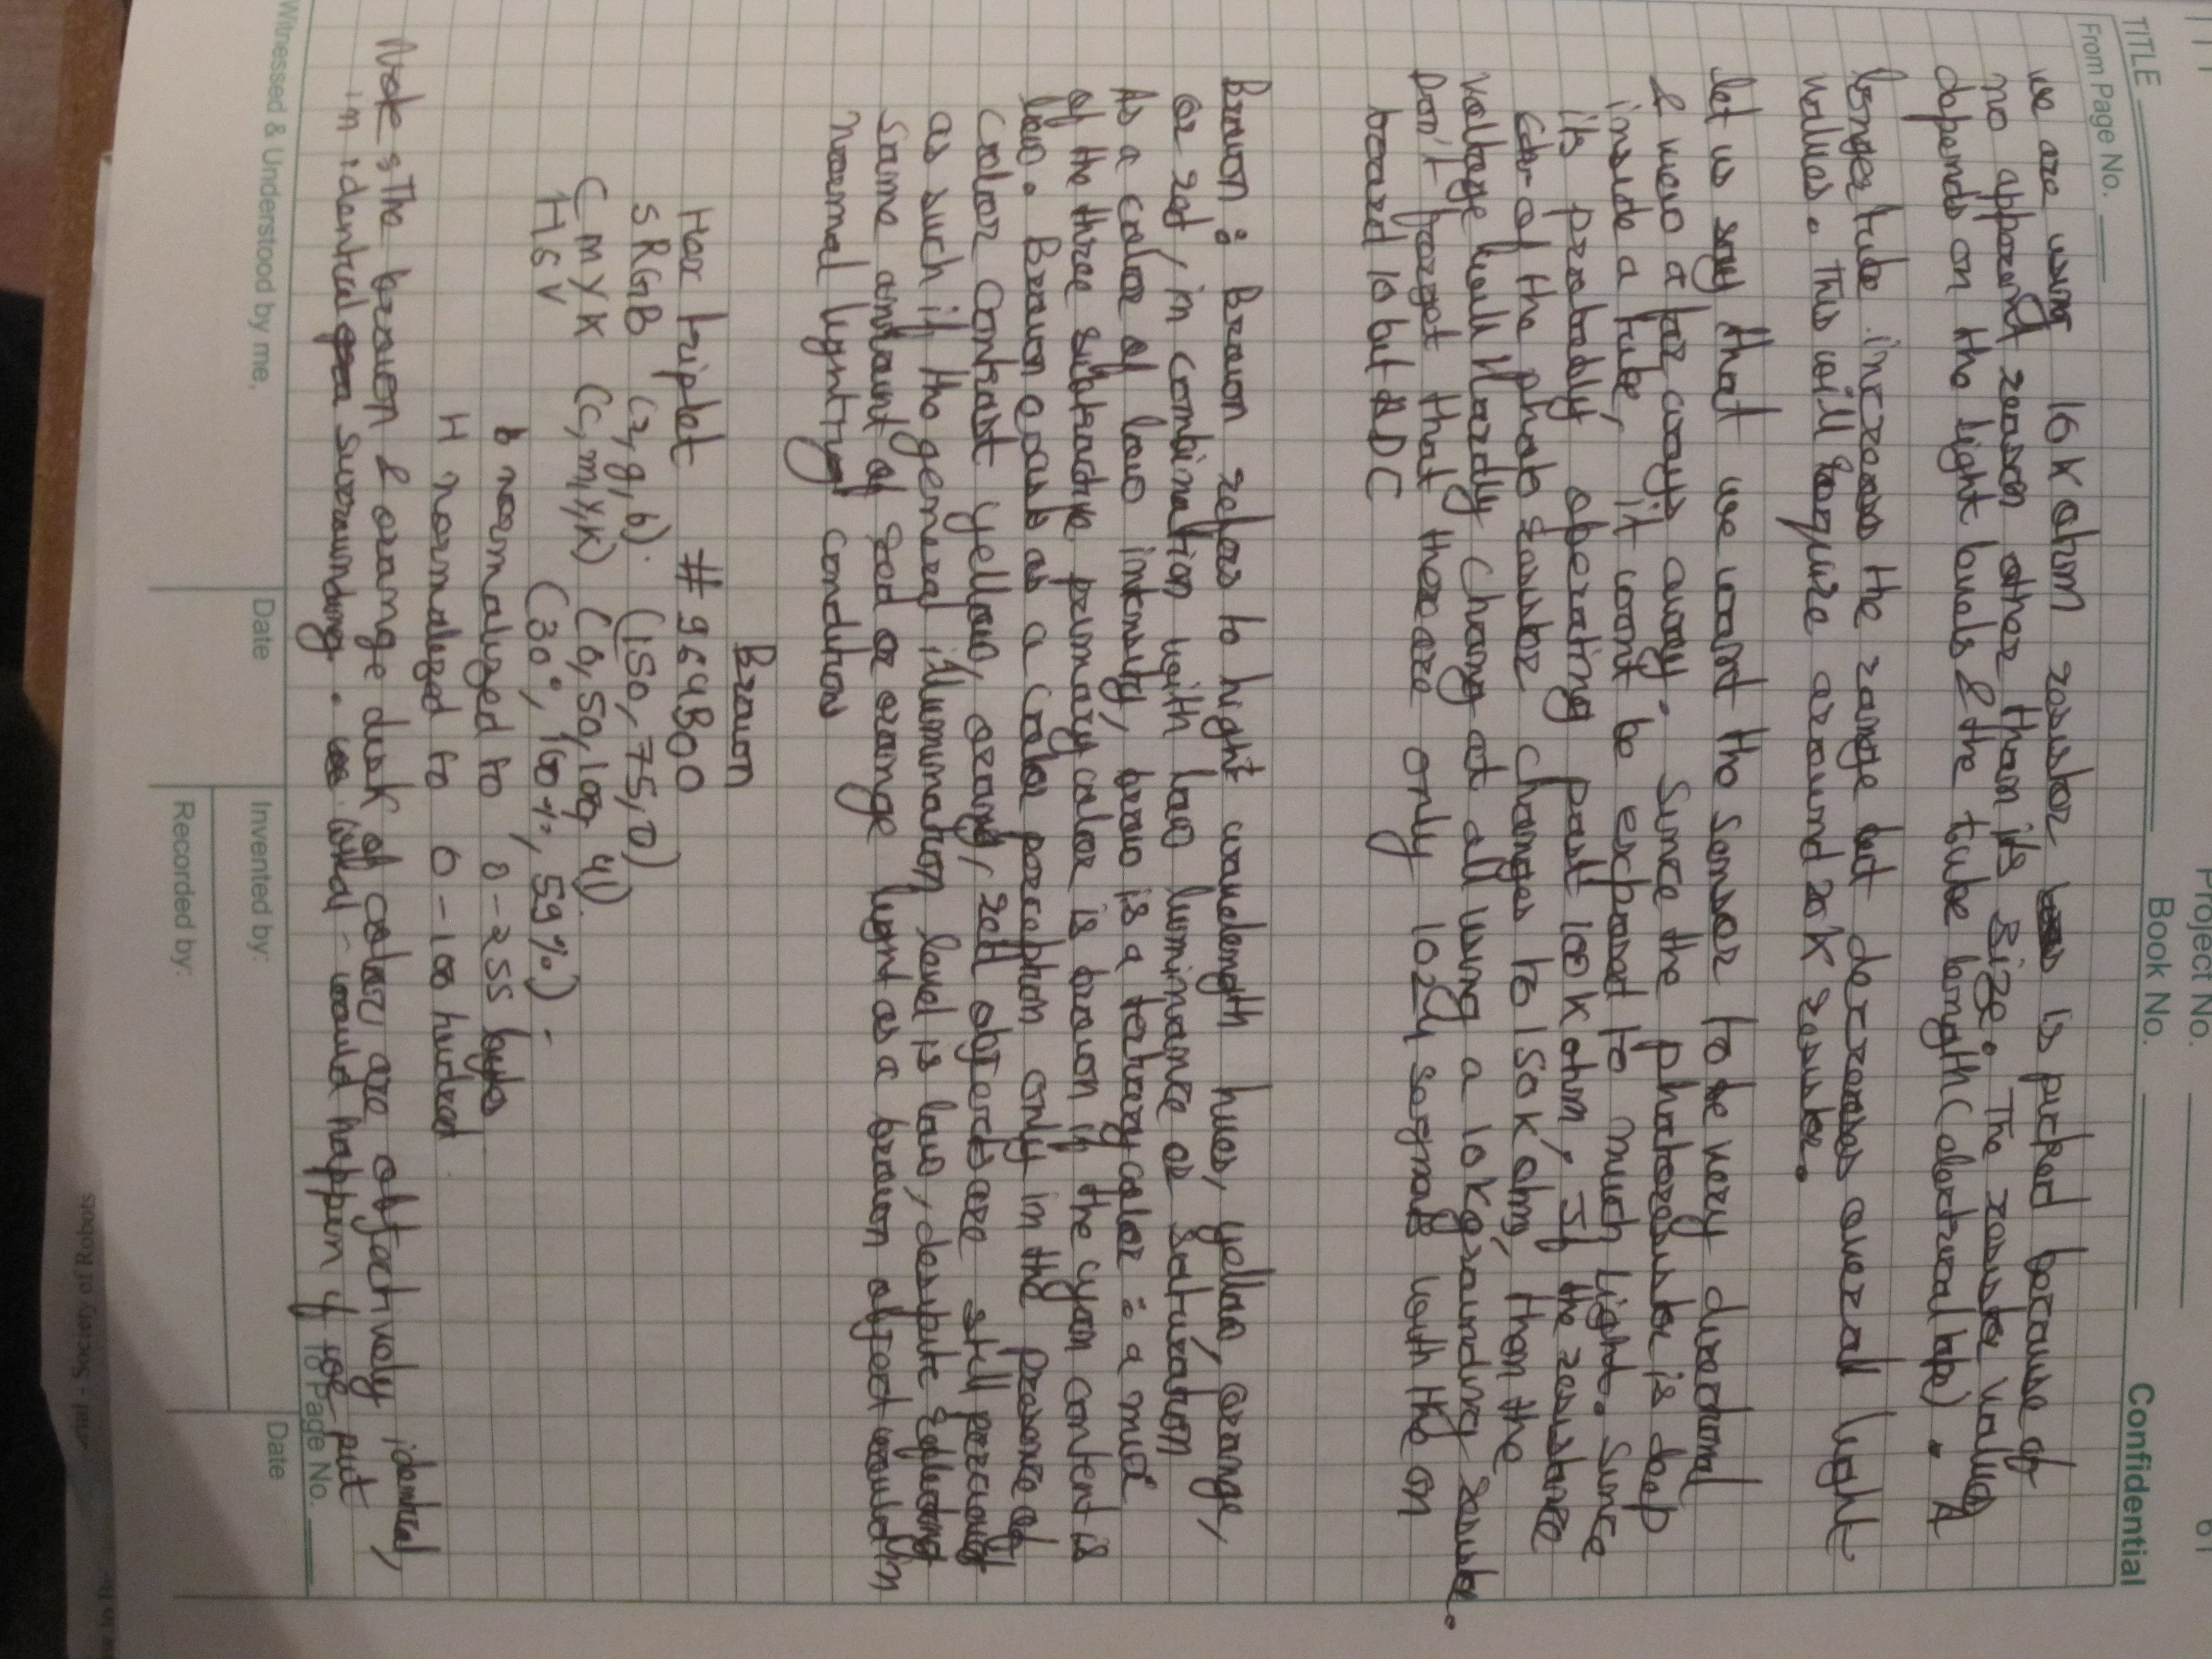 61
Project No.
TITLE Book No. Confidential
From Page No.
we are using 10K ohm resistor is picked because of
no apparent reason other than its size. The resistor values
depends on the light levels & the tube length (electrical tape). A
longer tube increases the range but decreases overall light
values. This will require around 20K resistor.
Let us say that we want the sensor to be very directional
& view a far ways away. Since the photoresistor is deep
inside a tube, it wont be exposed to much light. Since
its probably operating past 100K ohm, If the resistance
of the photo resistor changes to 150K ohm, then the
voltage will Hardly change at all using a 10K grounding resistor.
Don't forget that there are only 1024 segments with the on
board 10 bit ADC
Brown : Brown refers to hight wavelength hues, yellow, orange,
or red, in combination with low luminance or saturation
As a color of low intensity, brow is a tertiary color : a mix
of the three subtractive primary color is brown if the cyan content is
low. Brown exists as a color perception only in the presence of
color contrast yellow, orang, red objects are still perceived
as such if the general illumination level is low, despite reflecting
same amount of red or orange light as a brown object would in
normal lighting condition
Brown
Hex triplet #964B00
SRGB (r,g,b). (150, 75, 0)
CMYK (c,m,y,k) (0, 50, 100, 41)
HSV (30°, 100%, 59%)
b normalized to 0-255 byte
H normalized to 0-100 hundred
Note : The brown & orange disk of color are objectively identical,
in idential surrounding. What would happen if we put
To Page No.
Witnessed & Understood by me. Date Invented by: Date
Recorded by:
rial - Society of Robots